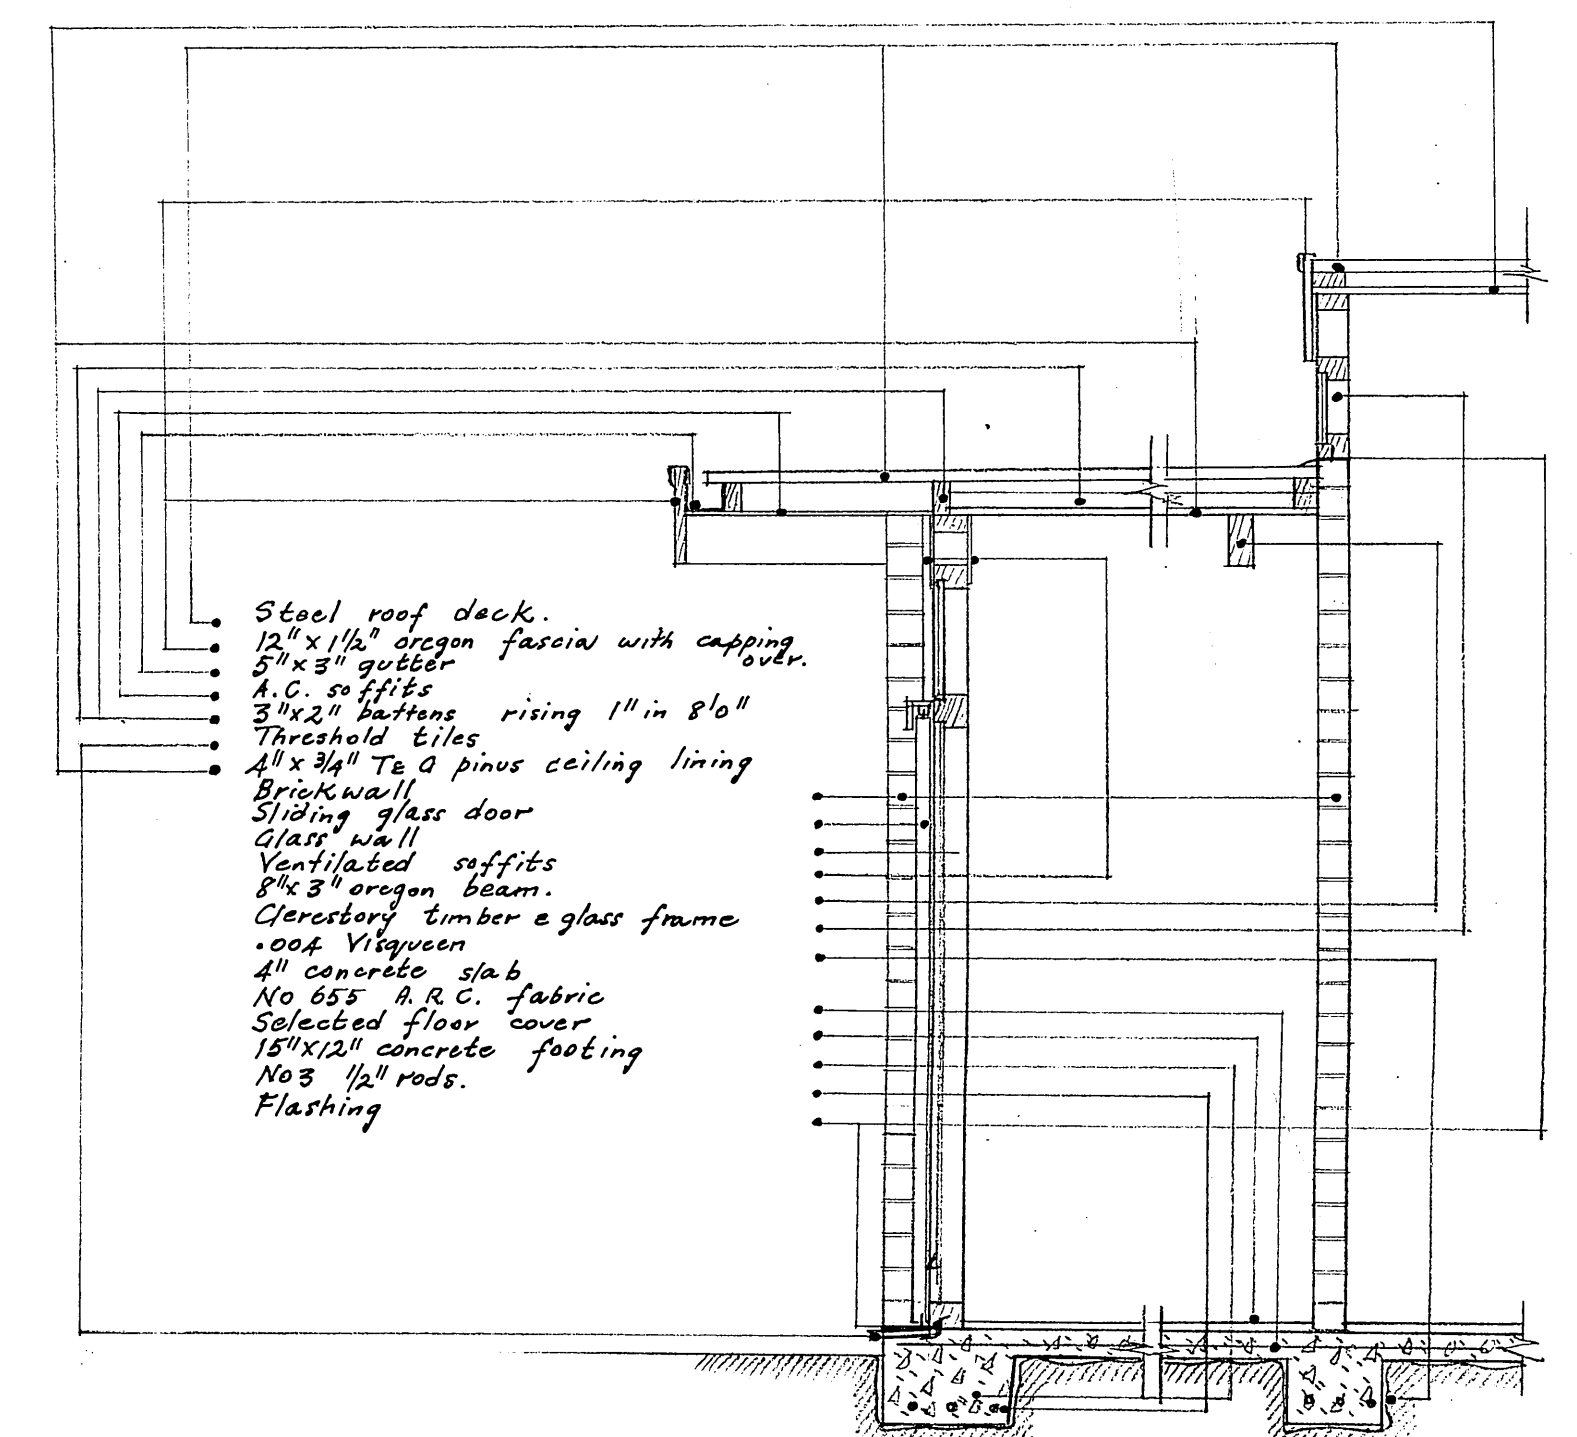 Steel roof deck.
12" x 1 1/2" oregon fascia with capping
over.
5" x 3" gutter
A.C. soffits
3"x2" battens rising 1" in 8'0"
Threshold tiles
4" x 3/4" T & G pinus ceiling lining
Brick wall
Sliding glass door
Glass wall
Ventilated soffits
8"x 3" oregon beam.
Clerestory timber & glass frame
.004 Visqueen
4" concrete slab
No 655 A.R.C. fabric
Selected floor cover
15"X12" concrete footing
No 3 1/2" rods.
Flashing